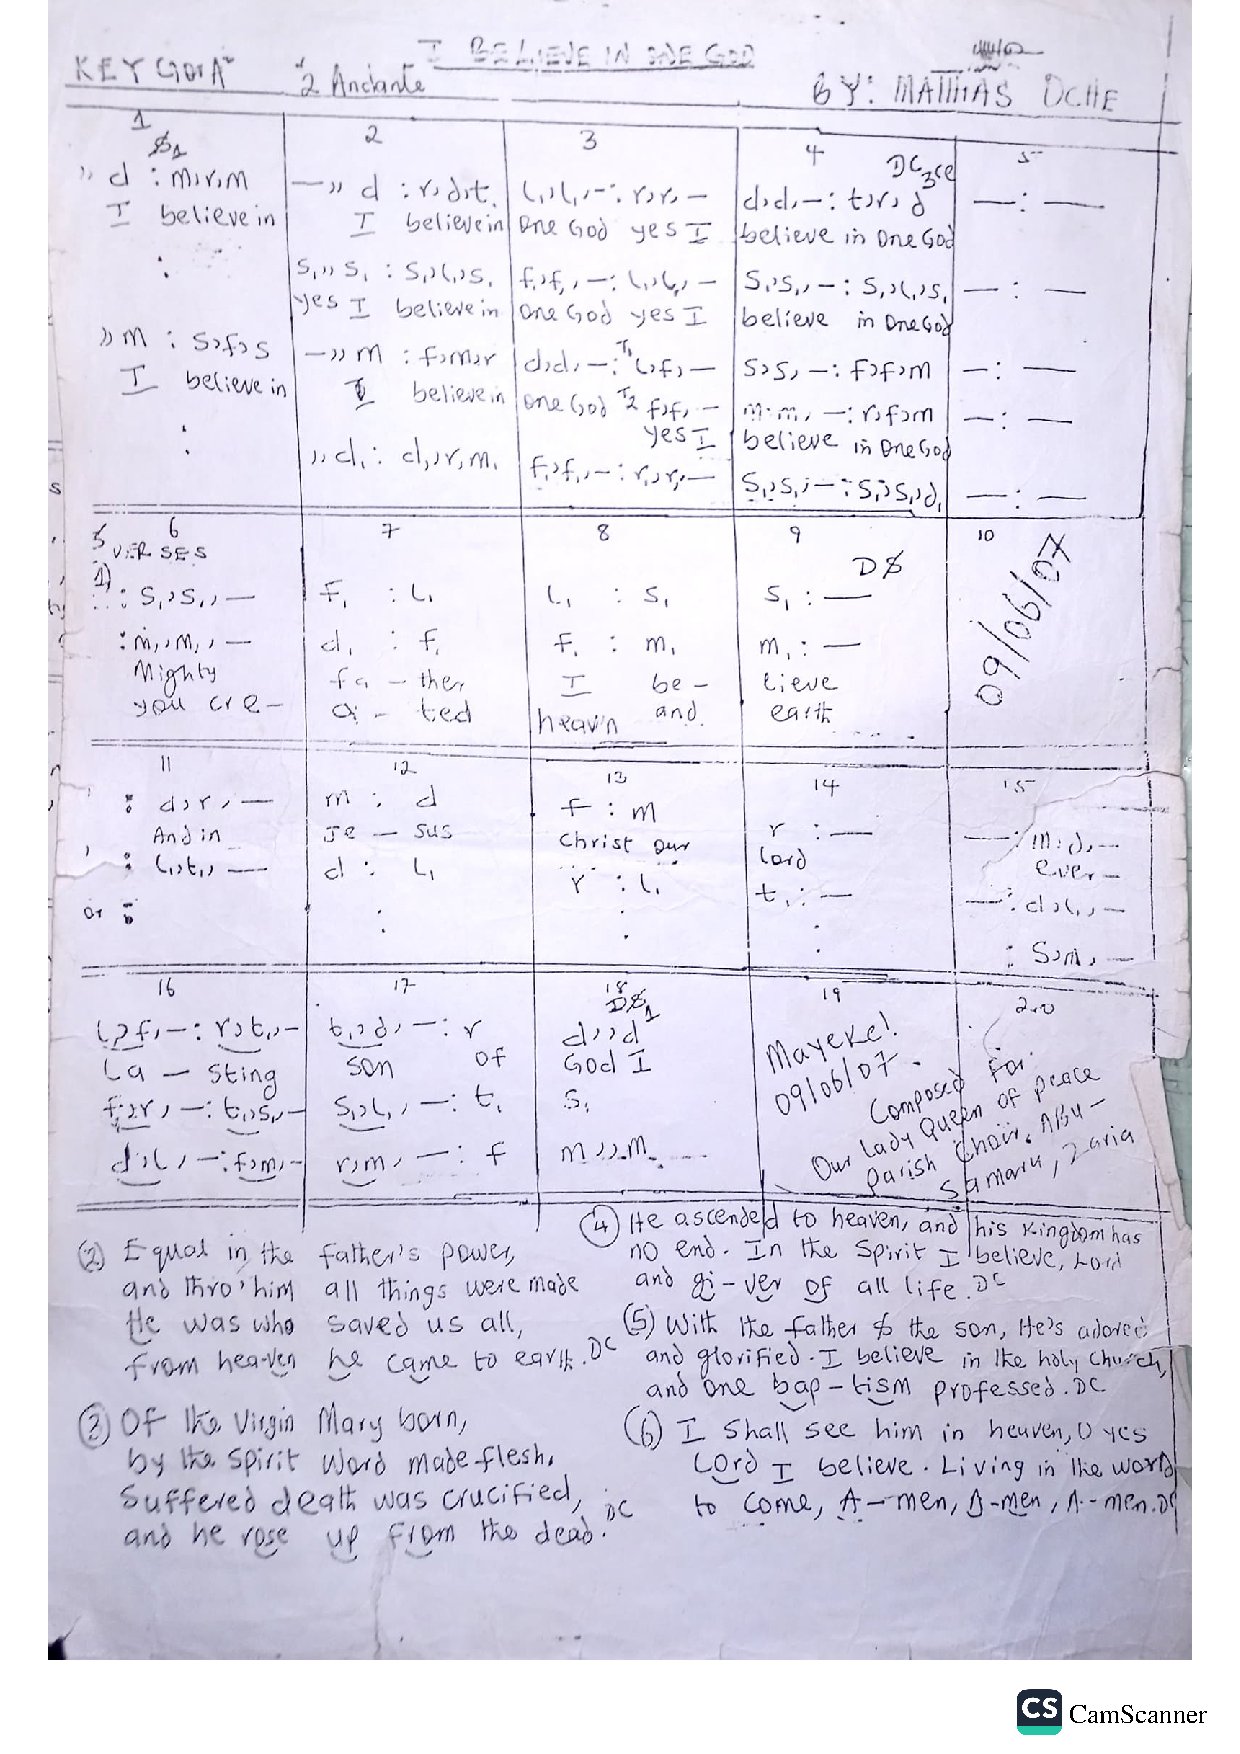 I BELIEVE IN ONE GOD
KEY G or A
2 Andante
BY: MATTHIAS OCHE
1 2 3 4 5
DC 3ce
,, d : m,r,m | —,, d : r,d,t, | l,,l,,—: r,r,— | d,d,—: t,r,d | —:—
I believe in | I believe in | One God yes I | believe in One God
: | s,,, s, : s,,l,,s, | f,,f,,—: l,,l,,— | s,,s,,—: s,,l,,s, | —:—
yes I believe in | One God yes I | believe in One God
,, m : s,f,s | —,, m : f,m,r | d,d,—: T1 l,,f,,— | s,s,—: f,f,m | —:—
I believe in | I believe in | One God T2 f,f,— | m,m,—: r,f,m | —:—
yes I | believe in One God
: | ,, d, : d,,r,,m, | f,,f,,—: r,,r,,— | s,,s,,—: s,,s,,d, | —:—
6 7 8 9 10
VERSES
D$
09/06/07
1) : s,,s,,— | f, : l, | l, : s, | s, : —
: m,,m,,— | d, : f, | f, : m, | m, : —
Mighty | fa - ther | I be - | lieve
you cre - | a - ted | heav'n and | earth
11 12 13 14 15
: d,r,— | m : d | f : m | r : — | —: m,d,—
And in | Je - sus | Christ our | Lord | ever -
: l,,t,,— | d : l, | r : l, | t, : — | —: d,l,,—
or : | : | : | : | : s,m,—
16 17 18 19 20
D$1
l,f,—: r,t,,— | t,,d,—: r | d,,d
La - sting | son of | God I
f,r,—: t,,s,,— | s,,l,,—: t, | s,
d,l,—: f,m,— | r,m,—: f | m,,m
Mayeke!
09/06/07.
Composed for
Our Lady Queen of Peace
Parish Choir, ABU -
Samaru, Zaria
(2) Equal in the father's power,
and thro' him all things were made
He was who saved us all,
from heaven he came to earth. DC
(3) Of the Virgin Mary born,
by the Spirit Word made flesh,
Suffered death was crucified,
and he rose up from the dead. DC
(4) He ascended to heaven, and his Kingdom has
no end. In the Spirit I believe, Lord
and gi-ver of all life. DC
(5) With the father & the son, He's adored
and glorified. I believe in the holy Church,
and one bap-tism professed. DC
(6) I shall see him in heaven, O yes
Lord I believe. Living in the world
to come, A-men, A-men, A-men. DC
CS CamScanner